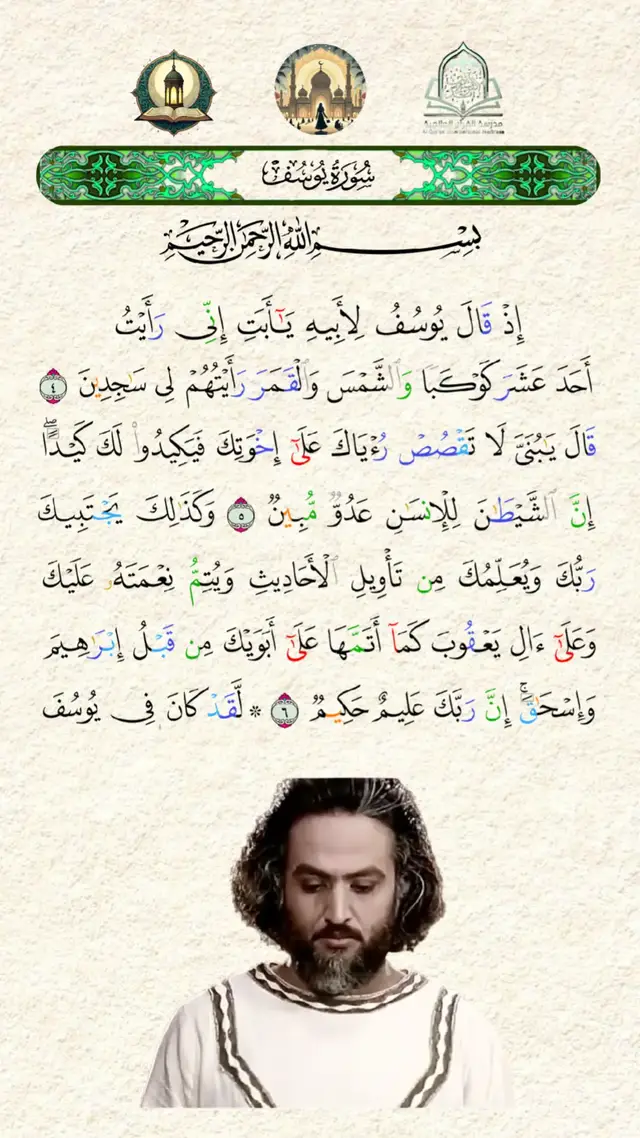 مدرسة القرآن العالمية
سُورَةُ يُوسُفَ
بِسْمِ اللَّهِ الرَّحْمَٰنِ الرَّحِيمِ
إِذْ قَالَ يُوسُفُ لِأَبِيهِ يَٰٓأَبَتِ إِنِّى رَأَيْتُ
أَحَدَ عَشَرَ كَوْكَبًا وَٱلشَّمْسَ وَٱلْقَمَرَ رَأَيْتُهُمْ لِى سَٰجِدِينَ ٤
قَالَ يَٰبُنَىَّ لَا تَقْصُصْ رُءْيَاكَ عَلَىٰٓ إِخْوَتِكَ فَيَكِيدُوا۟ لَكَ كَيْدًا ۖ
إِنَّ ٱلشَّيْطَٰنَ لِلْإِنسَٰنِ عَدُوٌّ مُّبِينٌ ٥ وَكَذَٰلِكَ يَجْتَبِيكَ
رَبُّكَ وَيُعَلِّمُكَ مِن تَأْوِيلِ ٱلْأَحَادِيثِ وَيُتِمُّ نِعْمَتَهُۥ عَلَيْكَ
وَعَلَىٰٓ ءَالِ يَعْقُوبَ كَمَآ أَتَمَّهَا عَلَىٰٓ أَبَوَيْكَ مِن قَبْلُ إِبْرَٰهِيمَ
وَإِسْحَٰقَ ۚ إِنَّ رَبَّكَ عَلِيمٌ حَكِيمٌ ٦ ۞ لَّقَدْ كَانَ فِى يُوسُفَ